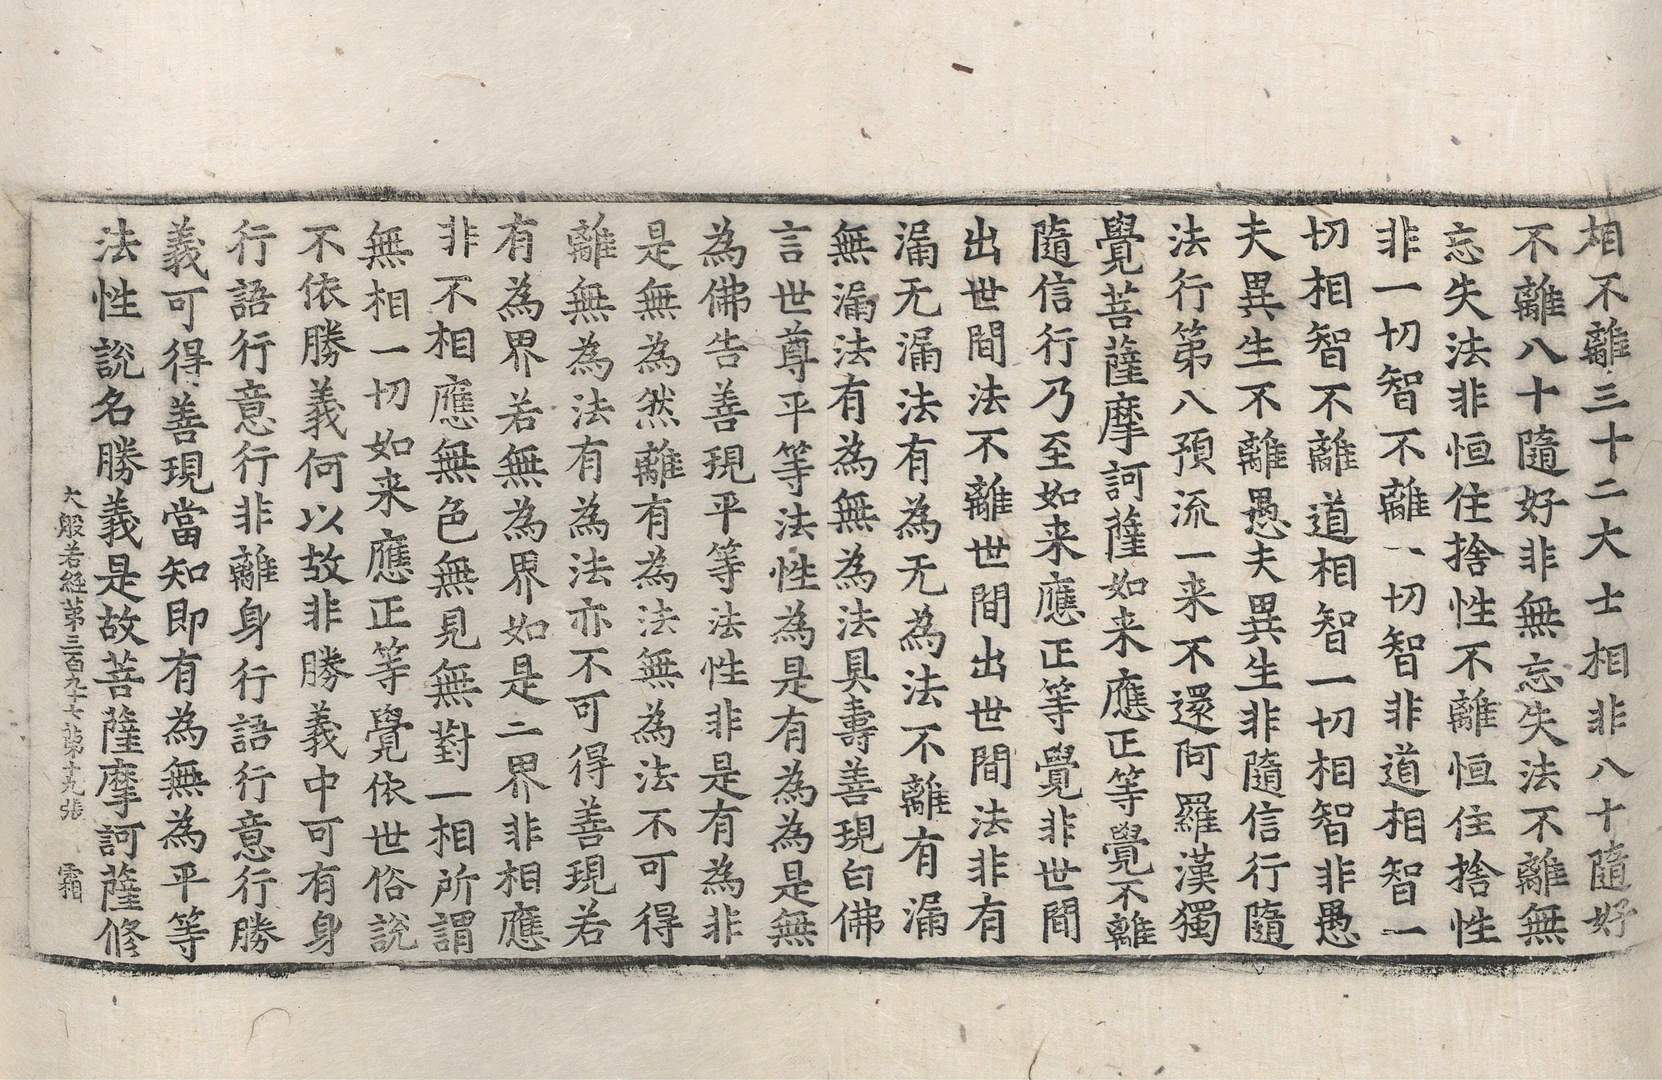 相不離三十二大士相非八十隨好
不離八十隨好非無忘失法不離無
忘失法非恒住捨性不離恒住捨性
非一切智不離一切智非道相智一
切相智不離道相智一切相智非愚
夫異生不離愚夫異生非隨信行隨
法行第八預流一来不還阿羅漢獨
覺菩薩摩訶薩如来應正等覺不離
隨信行乃至如来應正等覺非世間
出世間法不離世間出世間法非有
漏无漏法有為无為法不離有漏
無漏法有為無為法具壽善現白佛
言世尊平等法性為是有為為是無
為佛告善現平等法性非是有為非
是無為然離有為法無為法不可得
離無為法有為法亦不可得善現若
有為界若無為界如是二界非相應
非不相應無色無見無對一相所謂
無相一切如来應正等覺依世俗說
不依勝義何以故非勝義中可有身
行語行意行非離身行語行意行勝
義可得善現當知即有為無為平等
法性說名勝義是故菩薩摩訶薩修
大般若經第三百九十六 第十九張 霜